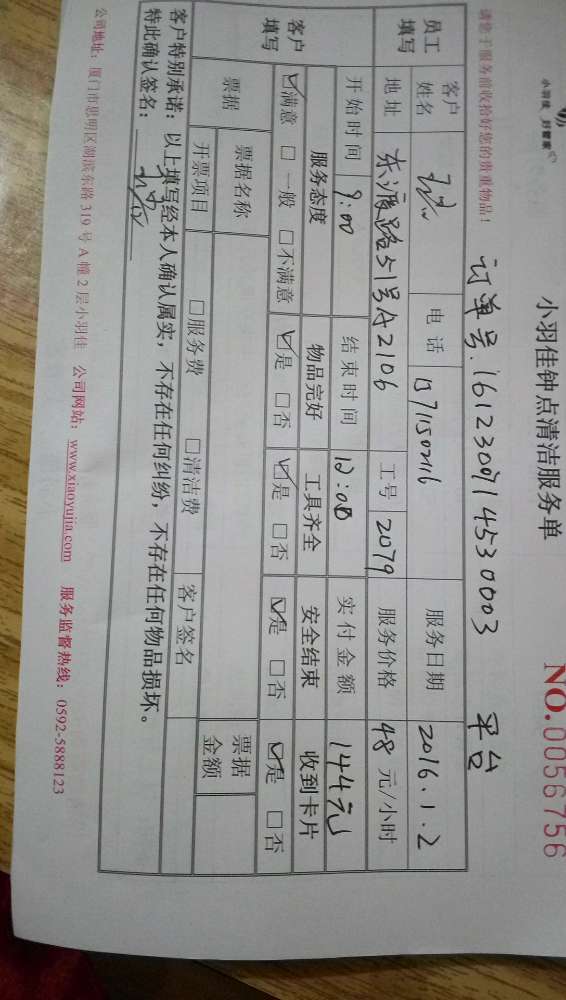 小羽佳 好管家
小羽佳钟点清洁服务单
NO.0056756
请您于服务前收拾好您的贵重物品!
订单号.161230914530003 平台
员工填写 客户姓名 电话 服务日期 2016.1.2
地址 东渡路51号A2106 工号 2079 服务价格 48 元/小时
开始时间 9:00 结束时间 12:00 实付金额 144元
客户填写 服务态度 物品完好 工具齐全 安全结束 收到卡片
☑满意 □一般 □不满意 ☑是 □否 ☑是 □否 ☑是 □否 ☑是 □否
票据 票据名称 票据金额
开票项目 □服务费 □清洁费 客户签名
客户特别承诺:以上填写经本人确认属实,不存在任何纠纷,不存在任何物品损坏。
特此确认签名:
公司地址:厦门市思明区湖滨东路319号A幢2层小羽佳 公司网站:www.xiaoyujia.com 服务监督热线:0592-5888123